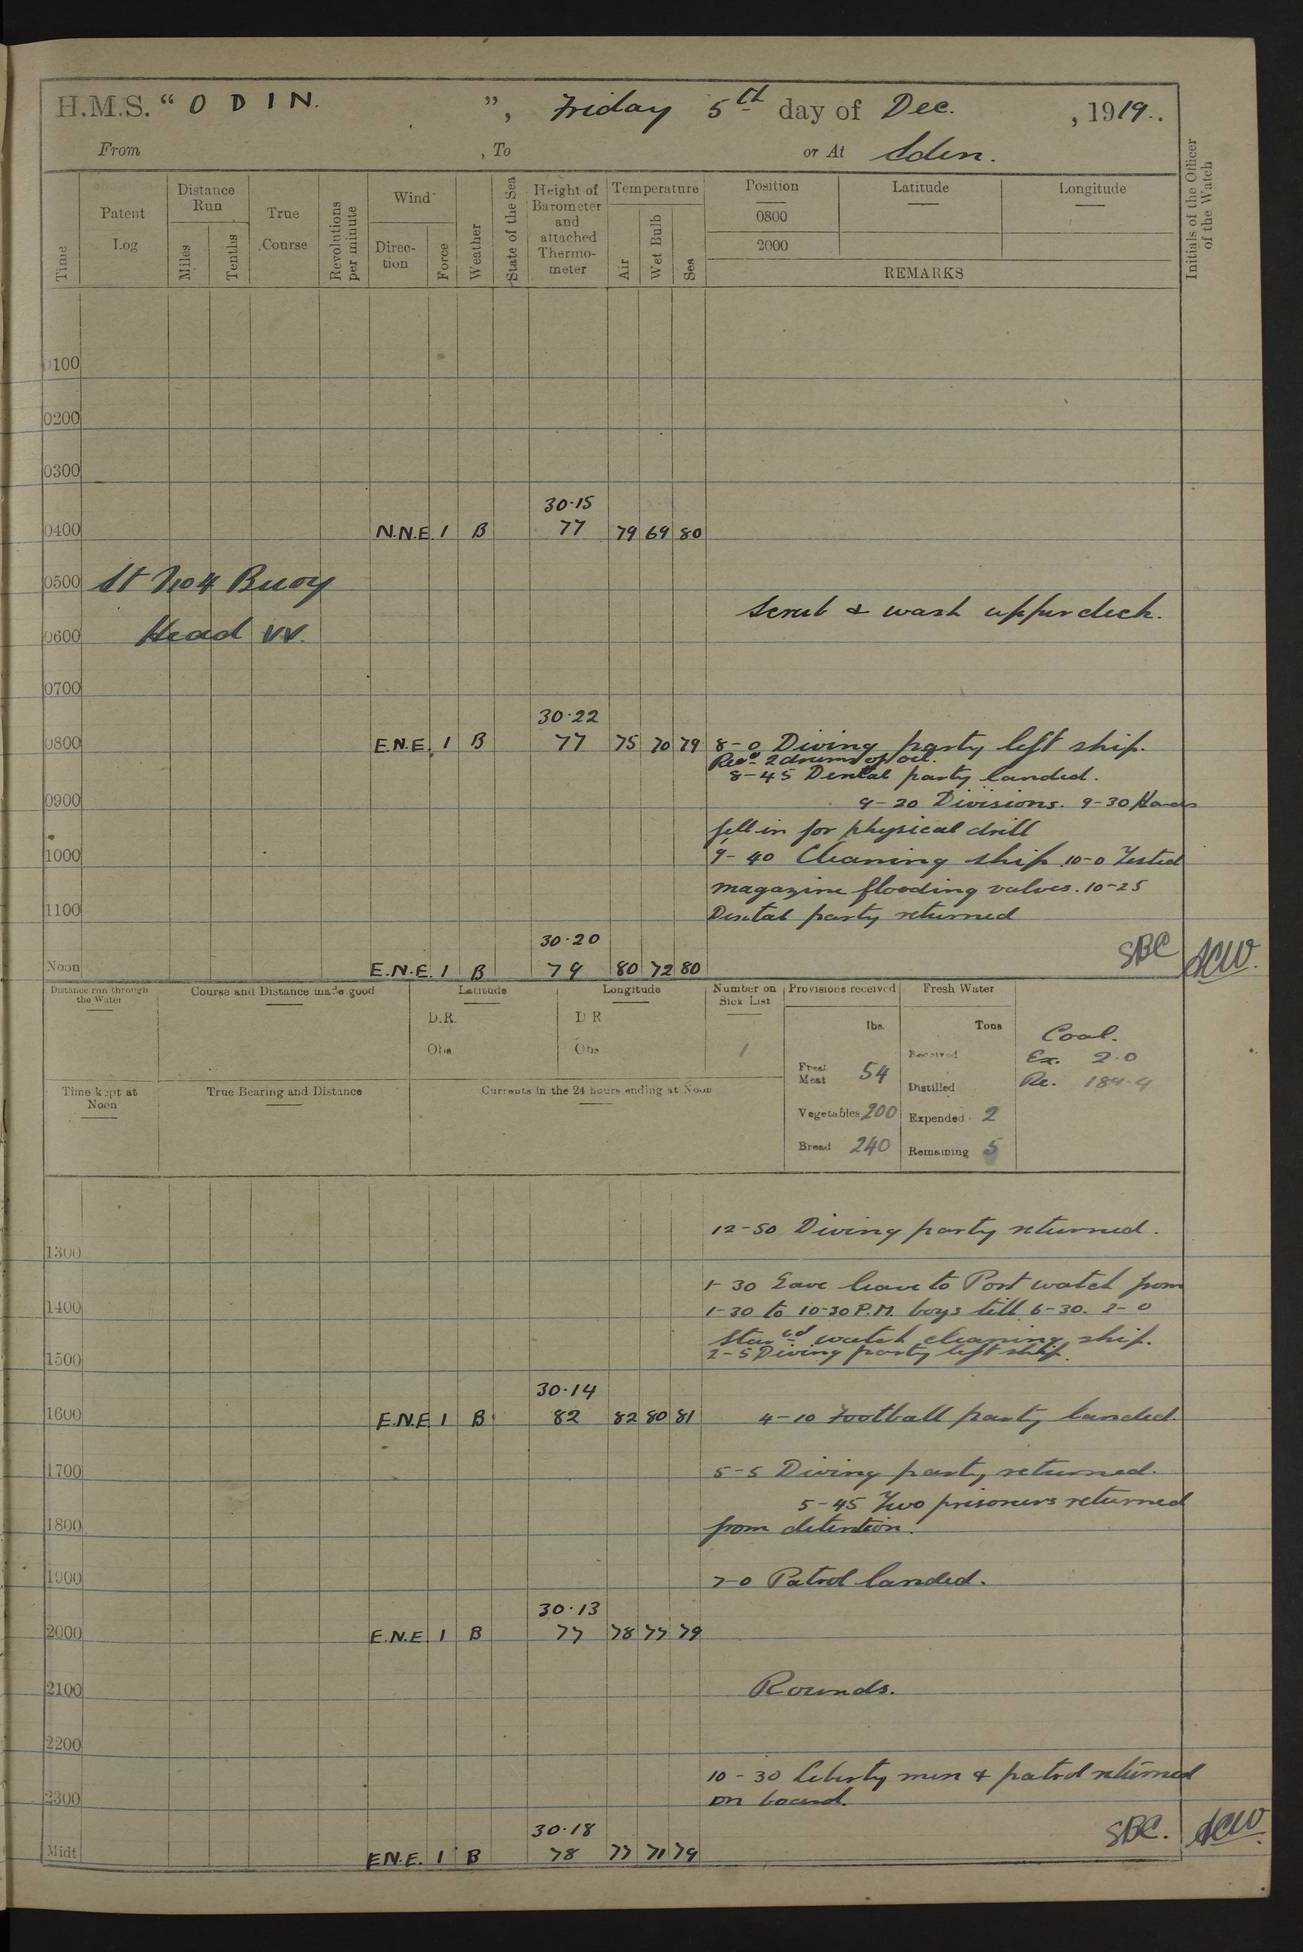 H.M.S. “ O D I N. ”, Friday 5th day of Dec. , 1919.
From , To or At Aden.
Time
Patent Log
Distance Run
Miles
Tenths
True Course
Revolutions per minute
Wind
Direc-tion
Force
Weather
State of the Sea
Height of Barometer and attached Thermo-meter
Temperature
Air
Wet Bulb
Sea
Position Latitude Longitude
0800
2000
REMARKS
Initials of the Officer of the Watch
0100
0200
0300
30.15
0400 N.N.E. 1 B 77 79 69 80
0500 At No 4 Buoy
Scrub & wash upper deck.
0600 Head W.
0700
30.22
0800 E.N.E. 1 B 77 75 70 79 8-0 Diving party left ship.
Recd 2 drums of oil.
8-45 Dental party landed.
0900 9-20 Divisions. 9-30 Hands
fell in for physical drill
1000 9-40 Cleaning ship. 10-0 Tested
magazine flooding valves. 10-25
1100 Dental party returned
30.20
Noon E.N.E. 1 B 79 80 72 80 SBC ACW.
Distance run through the Water
Course and Distance made good
Latitude
Longitude
Number on Sick List
Provisions received
Fresh Water
D.R. D R
lbs. Tons Coal.
Obs. Obs 1 Received Ex. 2.0
Fresh Meat 54 Distilled Re. 184.9
Time kept at Noon
True Bearing and Distance
Currents in the 24 hours ending at Noon
Vegetables 200 Expended 2
Bread 240 Remaining 5
12-50 Diving party returned.
1300
1-30 Gave leave to Port watch from
1400 1-30 to 10-30 P.M. boys till 6-30. 2-0
Starbd watch cleaning ship.
1500 2-5 Diving party left ship.
30.14
1600 E.N.E 1 B 82 82 80 81 4-10 Football party landed.
1700 5-5 Diving party returned.
5-45 Two prisoners returned
1800 from detention.
1900 7-0 Patrol landed.
30.13
2000 E.N.E. 1 B 77 78 77 79
2100 Rounds.
2200
10-30 Liberty men & patrol returned
2300 on board.
30.18
Midt E.N.E. 1 B 78 77 71 79 SBC. ACW